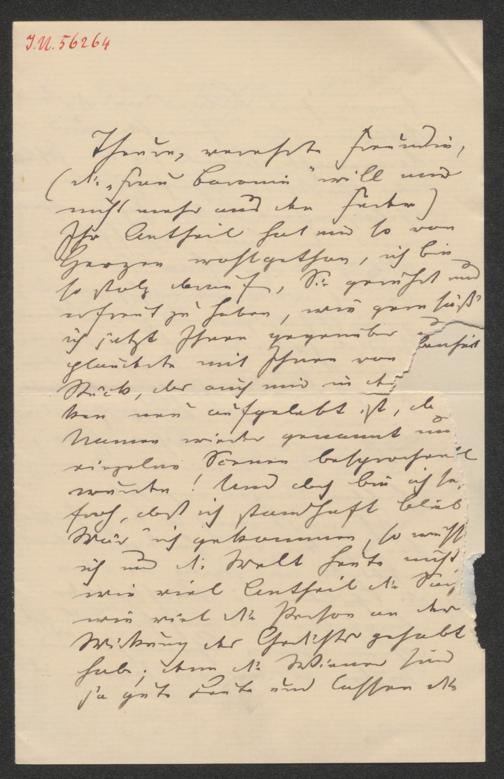 J.N. 56264
Theure, verehrte Freundin,
(die „Frau Baronin“ will mir
nicht mehr aus der Feder)
Ihr Antheil hat mir so von
Herzen wohlgethan, ich bin
so stolz darauf, Sie gerührt und
erfreut zu haben, wie gern säß'
ich jetzt Ihnen gegenüber
plauderte mit Ihnen von
Stück, das auch mir in
neu aufgelebt ist, da
Namen wieder genannt
einzelne Scenen besprochen
wurden! Und doch bin ich so
froh, daß ich standhaft blieb
Wär' ich gekommen, so wüßt
ich und die Welt heute nicht
wie viel Antheil die
wie viel die Person an der
Wirkung des Gedichtes gehabt
habe; denn die Wiener sind
ja gute Leute und lassen die